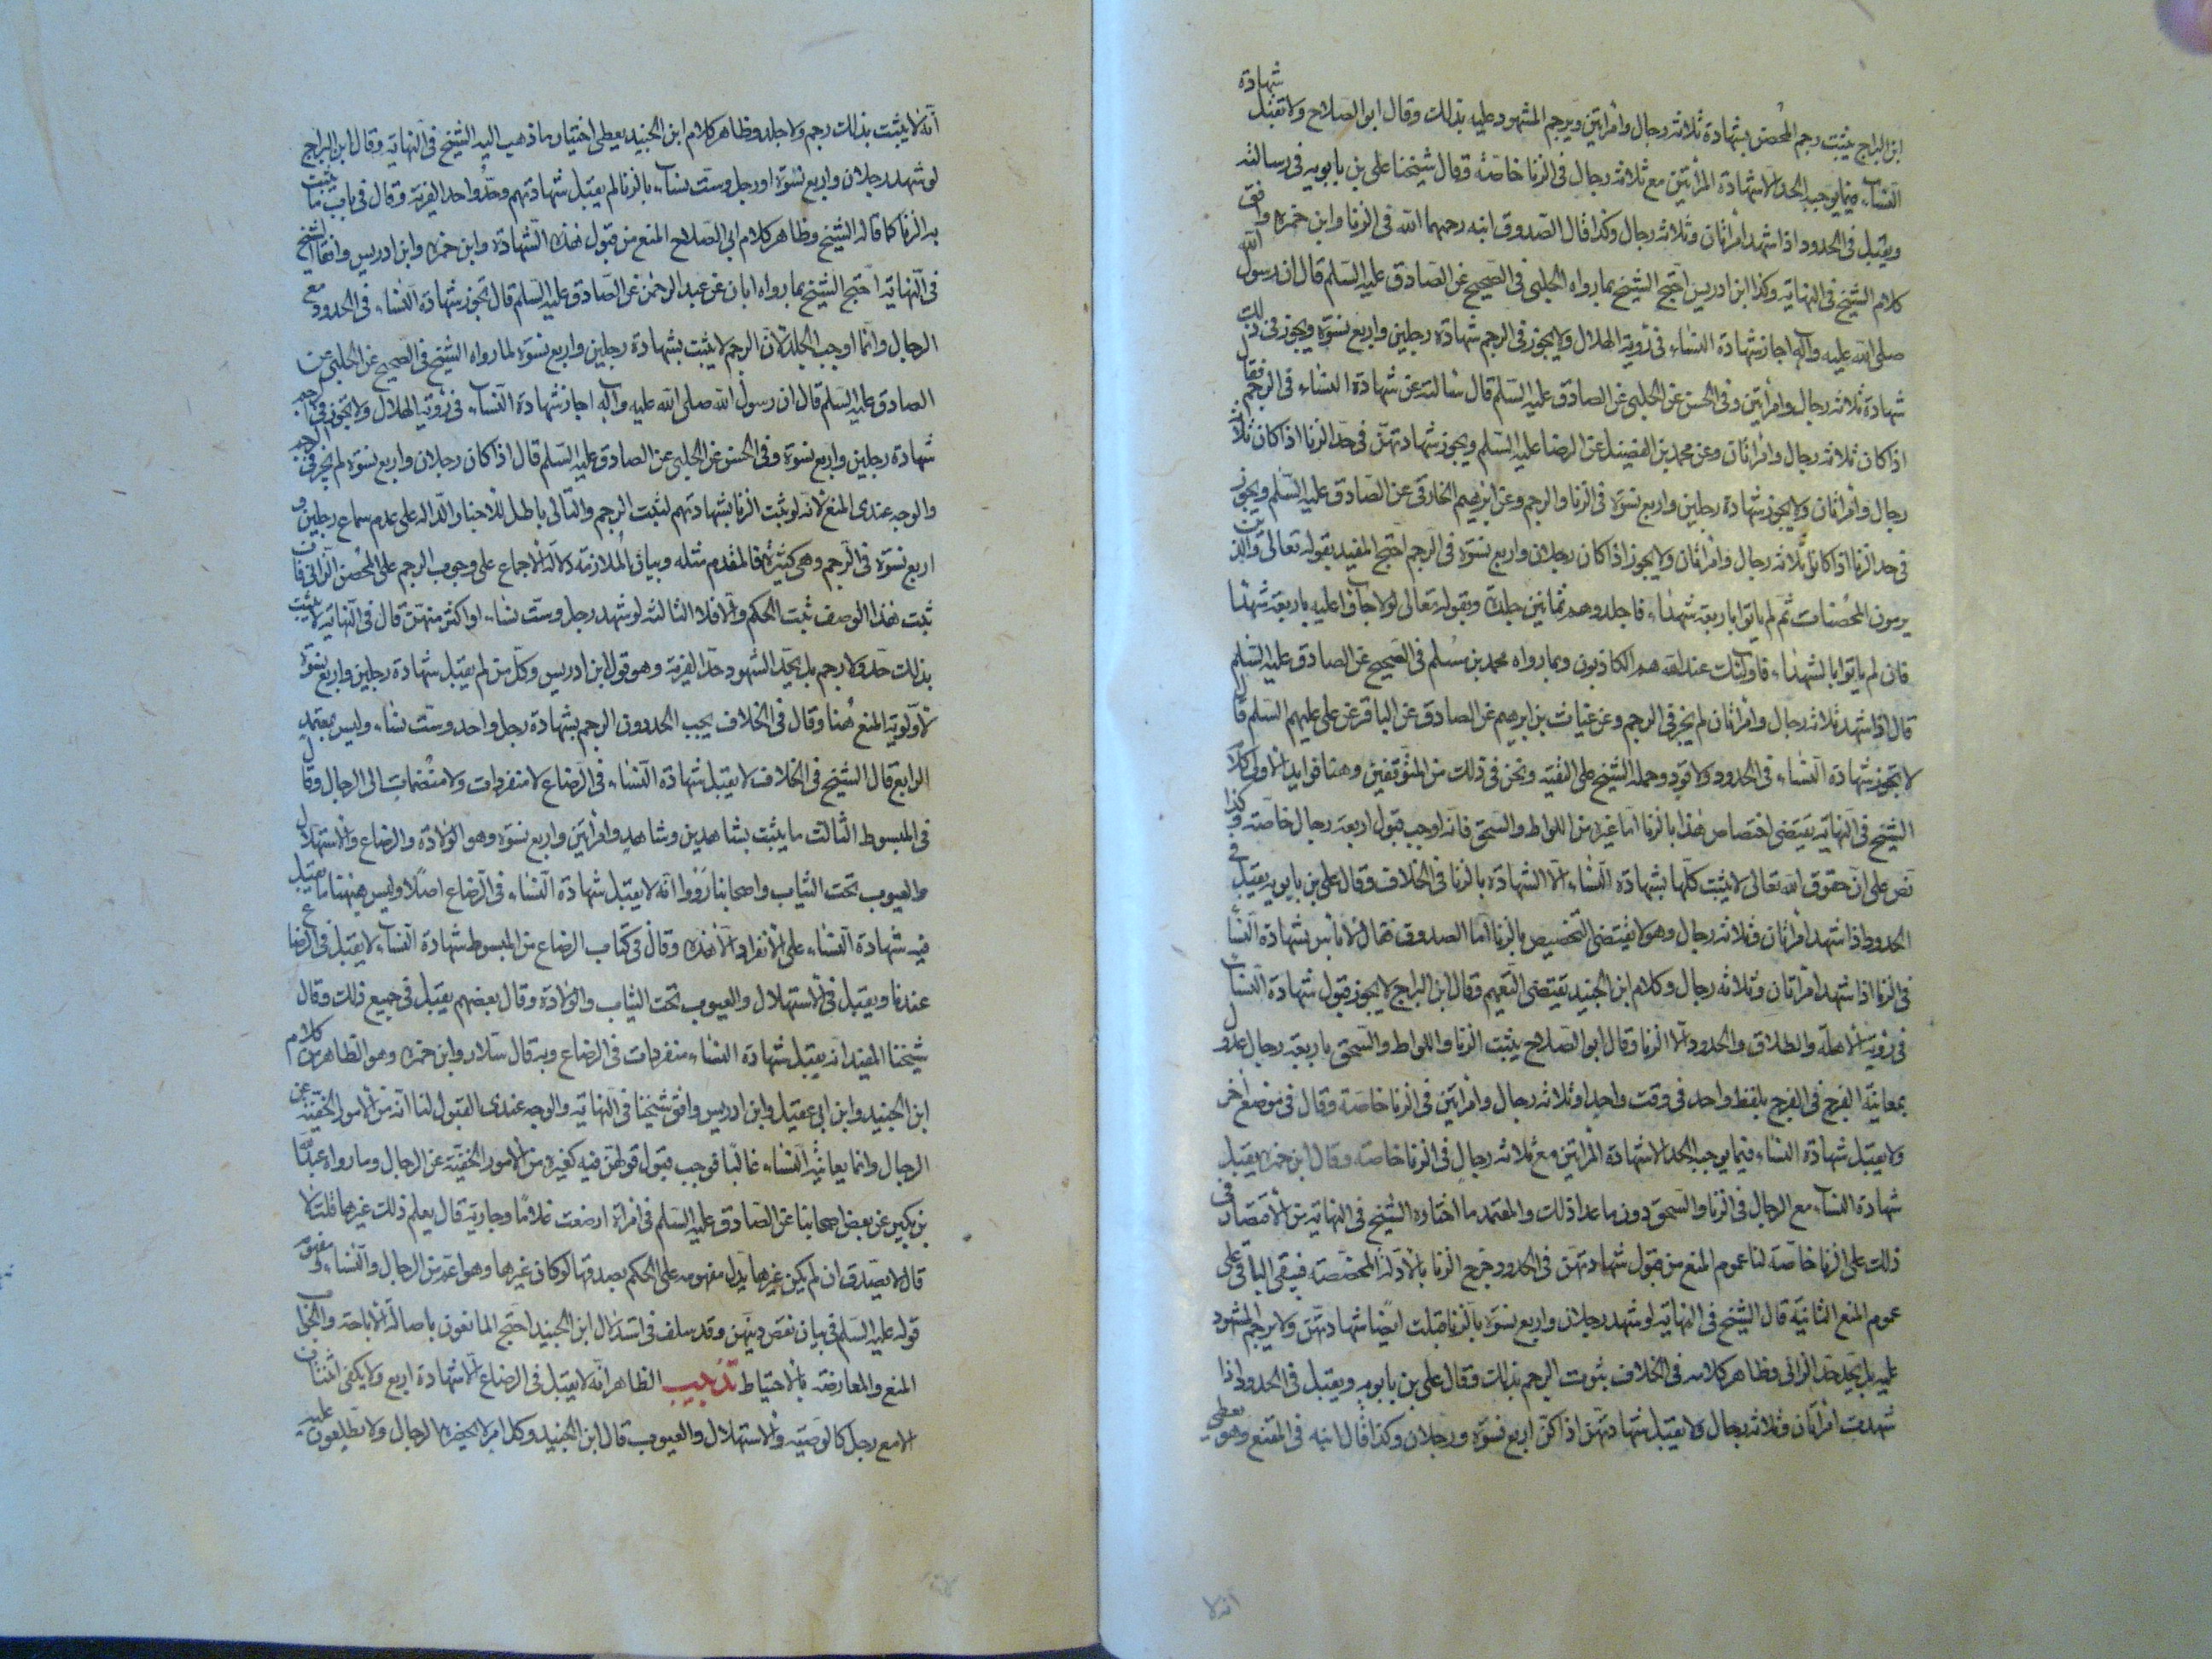 ابن البراج يثبت رجم المحصن بشهادة ثلاثة رجال وامرأتين ويرجم المشهود عليه بذلك وقال ابو الصلاح ولا تقبل شهادة
النساء فيما يوجب الحد الا شهادة امرأتين مع ثلاثة رجال في الزنا خاصة وقال شيخنا علي بن بابويه في رسالته
ويقبل في الحدود اذا شهد امرأتان وثلاثة رجال وكذا قال الصدوق ابنه رحمهما الله في الزنا وابن حمزة وافق
كلام الشيخ في النهاية وكذا ابن ادريس احتج الشيخ بما رواه الحلبي في الصحيح عن الصادق عليه السلم قال ان رسول الله
صلى الله عليه وآله اجاز شهادة النساء في رؤية الهلال ولا يجوز في الرجم شهادة رجلين واربع نسوة ويجوز في ذلك
شهادة ثلاثة رجال وامرأتين وفي الحسن عن الحلبي عن الصادق عليه السلم قال سالته عن شهادة النساء في الرجم فقال
اذا كان ثلاثة رجال وامرأتان وعن محمد بن الفضيل عن الرضا عليه السلم ويجوز شهادتهن في حد الزنا اذا كان ثلاثة
رجال وامرأتان ولا يجوز شهادة رجلين واربع نسوة في الزنا والرجم وعن ابرهيم الخارقي عن الصادق عليه السلم ويجوز
في حد الزنا اذا كانوا ثلاثة رجال وامرأتان ولا يجوز اذا كان رجلان واربع نسوة في الرجم احتج المفيد بقوله تعالى والذين
يرمون المحصنات ثم لم ياتوا باربعة شهداء فاجلدوهم ثمانين جلدة وبقوله تعالى لولا جاؤا عليه باربعة شهدا
فان لم ياتوا بالشهداء فاولئك عند الله هم الكاذبون وبما رواه محمد بن مسلم في الصحيح عن الصادق عليه السلم
قال اذا شهد ثلاثة رجال وامرأتان لم يجز في الرجم وعن غياث بن ابرهيم عن الصادق عن الباقر عن علي عليهم السلم قال
لا تجوز شهادة النساء في الحدود ولا قود وحمله الشيخ على التقية ونحن في ذلك من المتوقفين وهنا فوايد الاولى كلام
الشيخ في النهاية يقتضي اختصاص هذا بالزنا اما غيره من اللواط والسحق فانه اوجب قبول اربعة رجال خاصة وكذا
نص على ان حقوق الله تعالى لا يثبت كلها بشهادة النساء الا الشهادة بالزنا في الخلاف وقال علي بن بابويه يقبل في
الحدود اذا شهد امرأتان وثلاثة رجال وهو لا يقتضي التخصيص بالزنا اما الصدوق فقال لا باس بشهادة النساء
في الزنا اذا شهد امرأتان وثلاثة رجال وكلام ابن الجنيد يقتضي التعميم وقال ابن البراج لا يجوز قبول شهادة النساء
في رؤية الاهلة والطلاق والحدود الا الزنا وقال ابو الصلاح يثبت الزنا واللواط والسحق باربعة رجال عدول
بمعاينة الفرج في الفرج بلفظ واحد في وقت واحد او ثلاثة رجال وامرأتين في الزنا خاصة وقال في موضع آخر
ولا يقبل شهادة النساء فيما يوجب الحد الا شهادة امرأتين مع ثلاثة رجال في الزنا خاصة وقال ابن حمزة يقبل
شهادة النساء مع الرجال في الزنا والسحق دون ما عدا ذلك والمعتمد ما اختاره الشيخ في النهاية من الاقتصار في
ذلك على الزنا خاصة لنا عموم المنع من قبول شهادتهن في الحدود خرج الزنا بالادلة المخصصة فيبقى الباقي على
عموم المنع الثانية قال الشيخ في النهاية لو شهد رجلان واربع نسوة بالزنا قبلت ايضا شهادتهن ولا يرجم المشهود
عليه بل يحد حد الزاني وظاهر كلامه في الخلاف ثبوت الرجم بذلك وقال علي بن بابويه ويقبل في الحدود اذا
شهدت امرأتان وثلاثة رجال ولا يقبل شهادتهن اذا كن اربع نسوة ورجلان وكذا قال ابنه في المقنع وهو يعطي
انه لا
انه لا يثبت بذلك رجم ولا جلد وظاهر كلام ابن الجنيد يعطي اختيار ما ذهب اليه الشيخ في النهاية وقال ابن البراج
لو شهد رجلان واربع نسوة او رجل وست نساء بالزنا لم يقبل شهادتهم وحدوا حد الفرية وقال في باب ما يثبت
به الزنا كما قاله الشيخ وظاهر كلام ابي الصلاح المنع من قبول هذه الشهادة وابن حمزة وابن ادريس وافقا الشيخ
في النهاية احتج الشيخ بما رواه ابان عن عبد الرحمن عن الصادق عليه السلم قال تجوز شهادة النساء في الحدود مع
الرجال وانما اوجب الجلد لان الرجم لا يثبت بشهادة رجلين واربع نسوة لما رواه الشيخ في الصحيح عن الحلبي عن
الصادق عليه السلم قال ان رسول الله صلى الله عليه وآله اجاز شهادة النساء في رؤية الهلال ولا تجوز في الرجم
شهادة رجلين واربع نسوة وفي الحسن عن الحلبي عن الصادق عليه السلم قال اذا كان رجلان واربع نسوة لم يجز في الرجم
والوجه عندي المنع لانه لو ثبت الزنا بشهادتهم لثبت الرجم والتالي باطل للاخبار الدالة على عدم سماع رجلين و
اربع نسوة في الرجم وهي كثيرة فالمقدم مثله وبيان الملازمة دلالة الاجماع على وجوب الرجم على المحصن الزاني فان
ثبت هذا الوصف ثبت الحكم والا فلا الثالثة لو شهد رجل وست نساء او اكثر منهن قال في النهاية لا يثبت
بذلك حد ولا رجم بل يحد الشهود حد الفرية وهو قول ابن ادريس وكل من لم يقبل شهادة رجلين واربع نسوة
لاولوية المنع هنا وقال في الخلاف يجب الحد دون الرجم بشهادة رجل واحد وست نساء وليس بمعتمد
الرابع قال الشيخ في الخلاف لا يقبل شهادة النساء في الرضاع لا منفردات ولا منضمات الى الرجال وقال
في المبسوط الثالث ما يثبت بشاهدين وشاهد وامرأتين واربع نسوة وهو الولادة والرضاع والاستهلال
والعيوب تحت الثياب واصحابنا رووا انه لا يقبل شهادة النساء في الرضاع اصلا وليس ههنا ما يقبل
فيه شهادة النساء على الانفراد الا هذه وقال في كتاب الرضاع من المبسوط شهادة النساء لا يقبل في الرضاع
عندنا ويقبل في الاستهلال والعيوب تحت الثياب والولادة وقال بعضهم يقبل في جميع ذلك وقال
شيخنا المفيد انه يقبل شهادة النساء منفردات في الرضاع وبه قال سلار وابن حمزة وهو الظاهر من كلام
ابن الجنيد وابن ابي عقيل وابن ادريس وافق شيخنا في النهاية والوجه عندي القبول لنا انه من الامور الخفية عن
الرجال وانما يعاينه النساء غالبا فوجب قبول قولهن فيه كغيره من الامور الخفية عن الرجال وما رواه عبد الله
بن بكير عن بعض اصحابنا عن الصادق عليه السلم في امرأة ارضعت غلاما وجارية قال يعلم ذلك غيرها قلت لا
قال لا يصدق ان لم يكن غيرها يدل مفهومه على الحكم بصدقها لو كان غيرها وهو اعم من الرجال والنساء ومفهوم
قوله عليه السلم في بيان نقص دينهن وقد سلف في استدلال ابن الجنيد احتج المانعون باصالة الاباحة والجواب
المنع والمعارضة بالاحتياط تذنيب الظاهر انه لا يقبل في الرضاع الا شهادة اربع ولا يكفي اثنتان
الا مع رجل كالوصية والاستهلال والعيوب قال ابن الجنيد وكل امر لا يحضره الرجال ولا يطلعون عليه